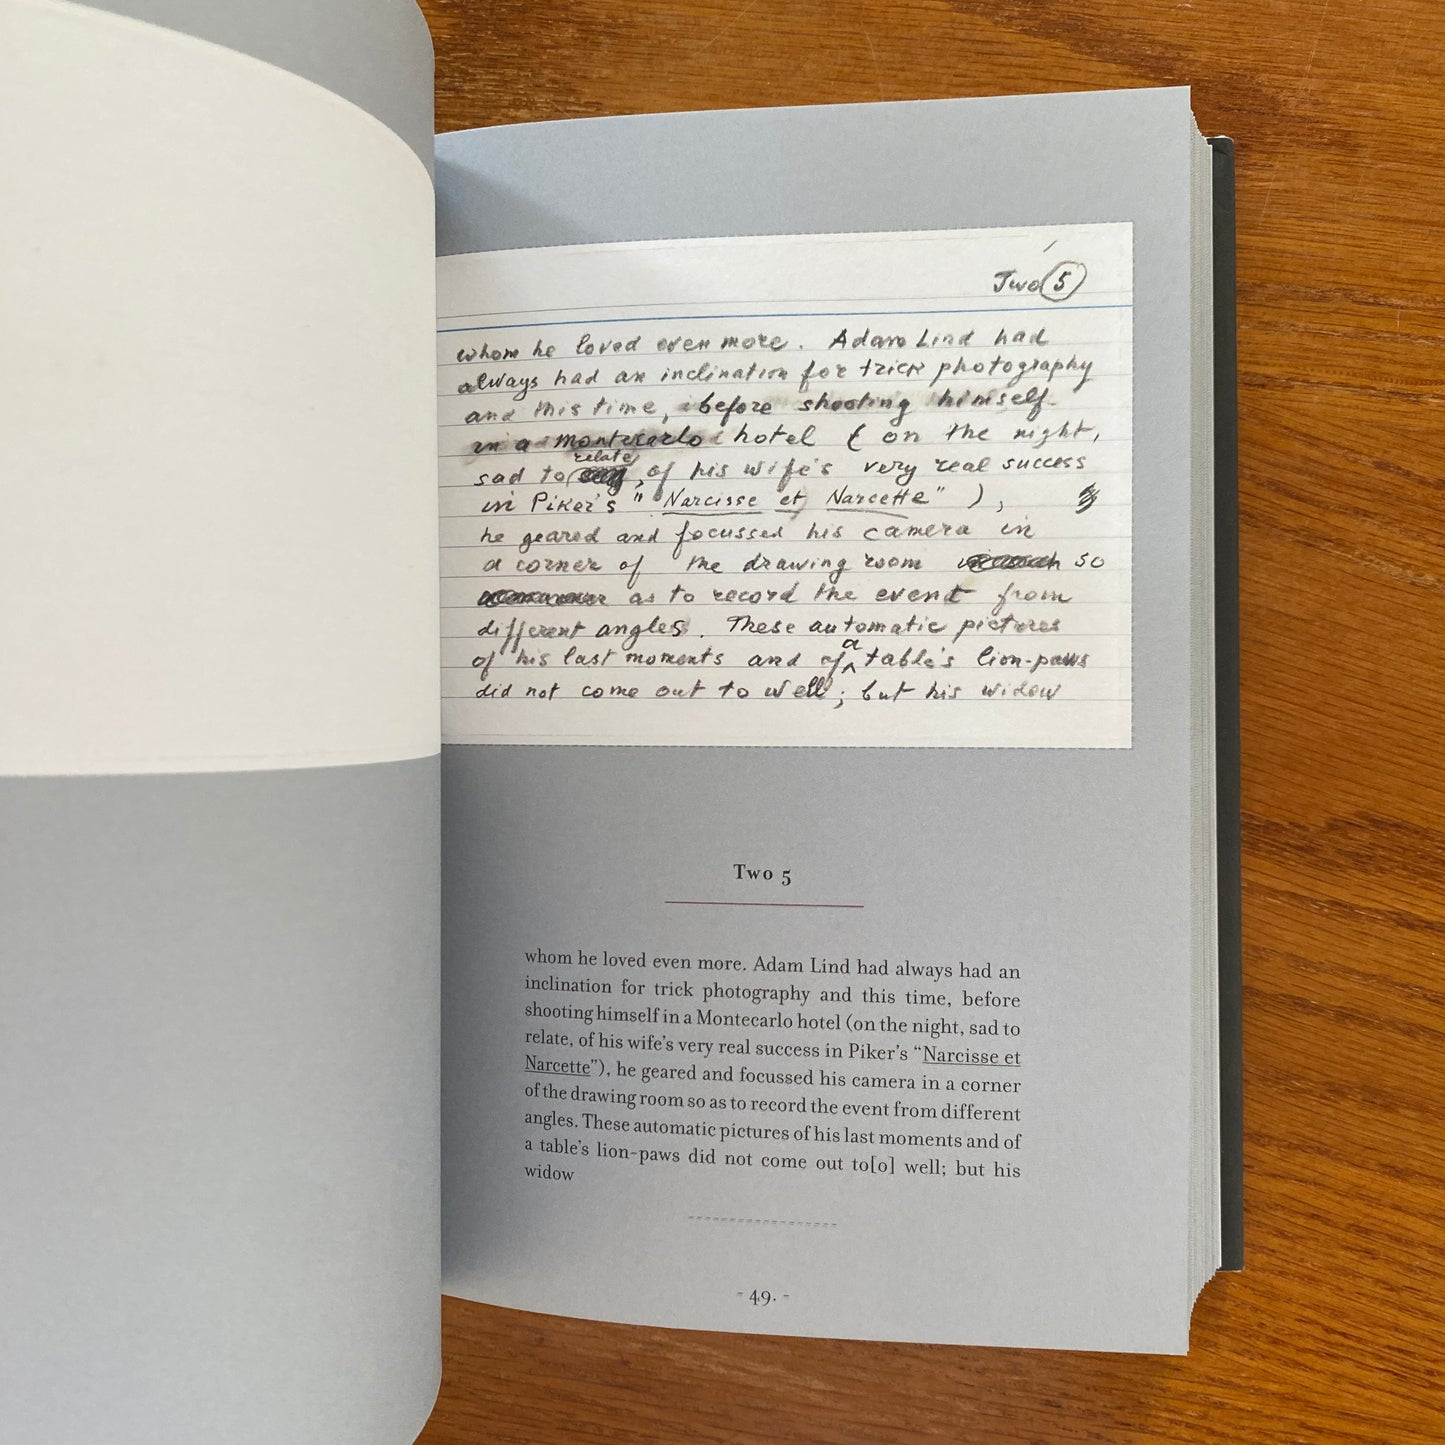 Two 5
whom he loved even more. Adam Lind had
always had an inclination for trick photography
and this time, before shooting himself
in a montecarlo hotel (on the night,
relate
sad to, of his wife's very real success
in Piker's "Narcisse et Narcette"),
he geared and focussed his camera in
a corner of the drawing room so
as to record the event from
different angles. These automatic pictures
a
of his last moments and of table's lion-paws
did not come out to well; but his widow
Two 5
whom he loved even more. Adam Lind had always had an
inclination for trick photography and this time, before
shooting himself in a Montecarlo hotel (on the night, sad to
relate, of his wife's very real success in Piker's “Narcisse et
Narcette”), he geared and focussed his camera in a corner
of the drawing room so as to record the event from different
angles. These automatic pictures of his last moments and of
a table's lion-paws did not come out to[o] well; but his
widow
- 49. -